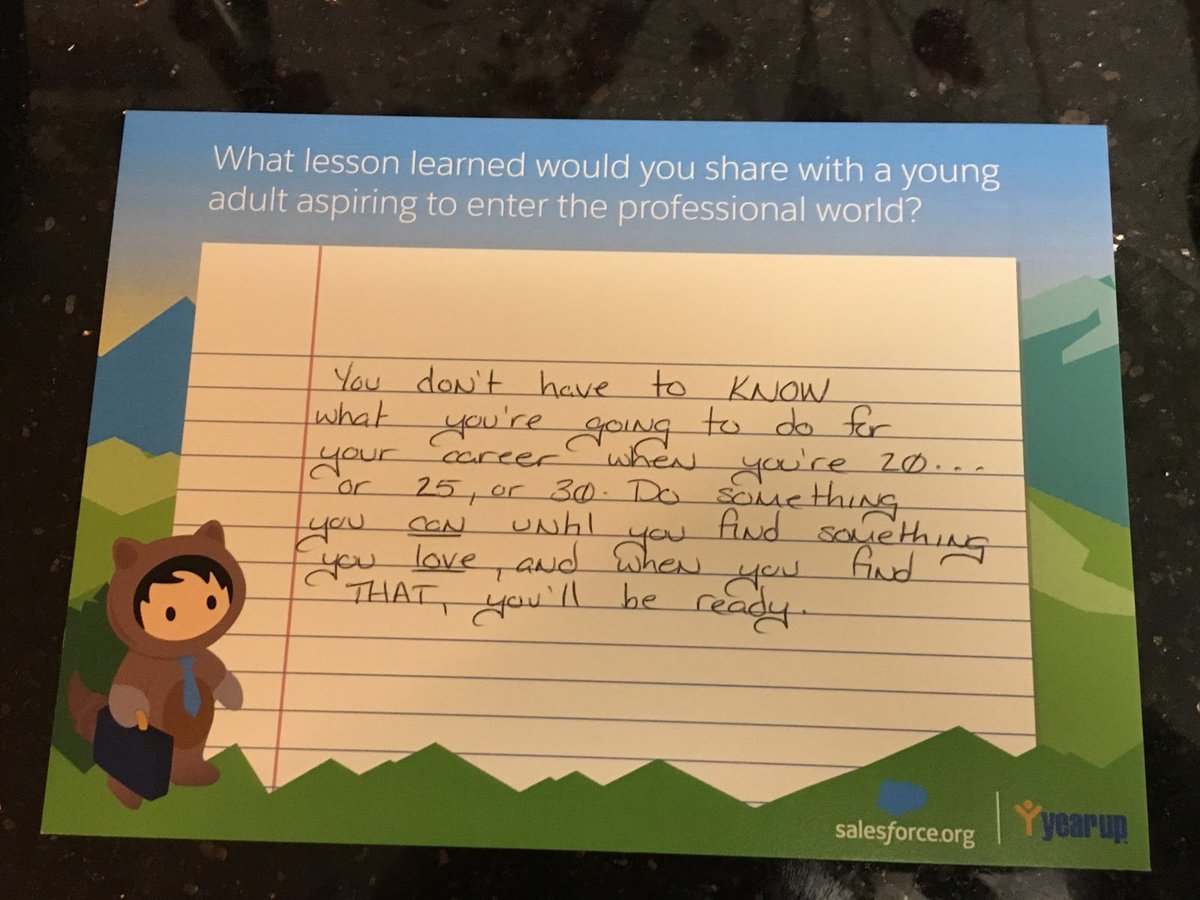 What lesson learned would you share with a young
adult aspiring to enter the professional world?
You don't have to KNOW
what you're going to do for
your career when you're 20...
or 25, or 30. Do something
you can until you find something
you love, and when you find
THAT, you'll be ready.
salesforce.org
year up